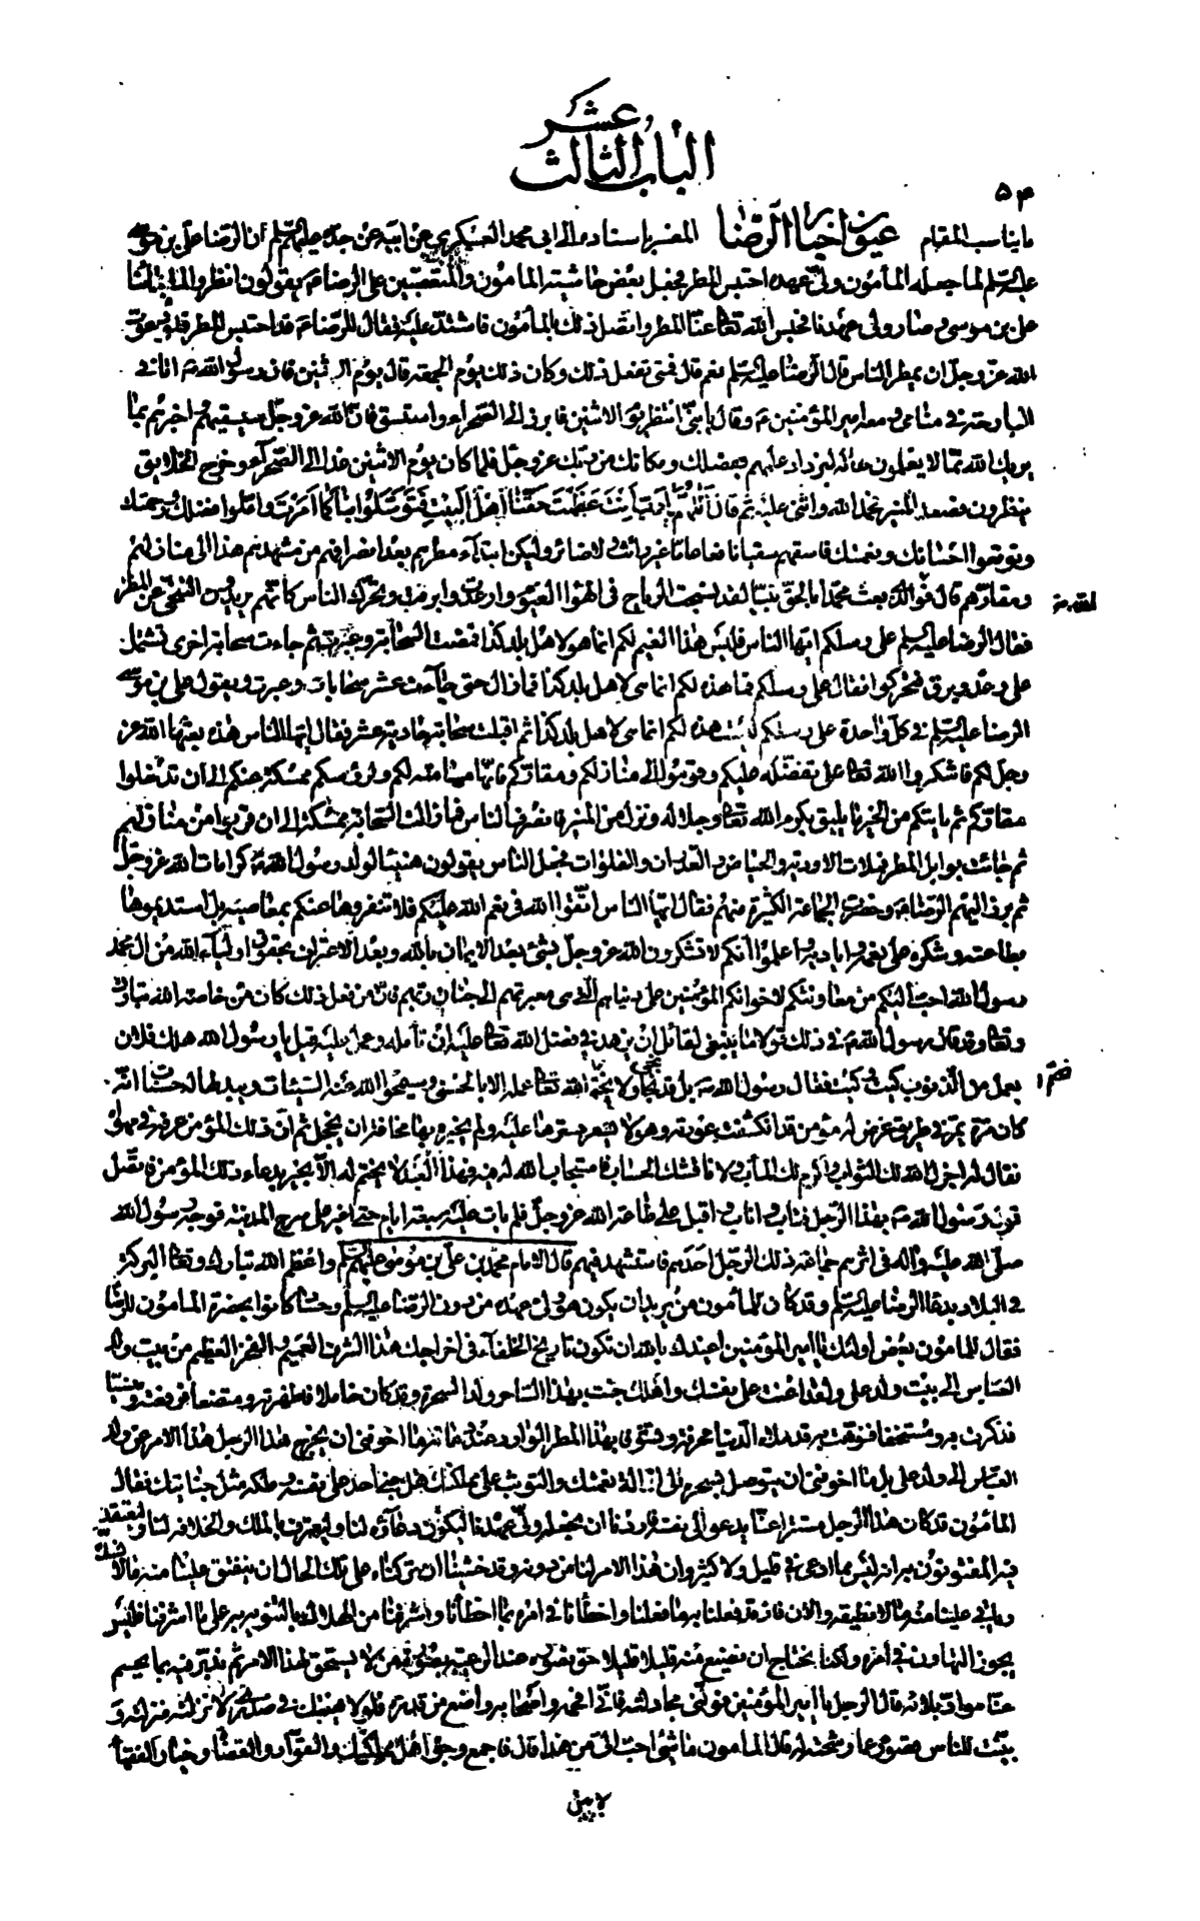 عشر
الباب الثالث
٥٣
ما يناسب المقام عيون اخبار الرضا المفسر باسناده الى ابى محمد العسكرى عن ابيه عن جده عليهم السلم ان الرضا على بن موسى
عليه السلم لما جعله المأمون ولى عهده احتبس المطر فجعل بعض حاشية المأمون والمتعصبين على الرضا ع يقولون انظروا لما جائنا
على بن موسى و صار ولى عهدنا فحبس الله تعالى عنا المطر واتصل ذلك بالمأمون فاشتد عليه فقال للرضا ع قد احتبس المطر فلو دعوت
الله عز وجل ان يمطر الناس قال الرضا عليه السلم نعم قال فمتى تفعل ذلك وكان ذلك يوم الجمعة قال يوم الاثنين فان رسول الله ص اتانى
البارحة فى منامى و معه امير المؤمنين ع وقال يا بنى انتظر يوم الاثنين فابرز الى الصحراء واستسق فان الله عز وجل سيسقيهم واخبرهم بما
يريك الله مما لا يعلمون حاله ليزداد علمهم بفضلك ومكانك من ربك عز وجل فلما كان يوم الاثنين غدا الى الصحراء وخرج الخلايق
ينظرون فصعد المنبر فحمد الله واثنى عليه ثم قال اللهم يا رب انت عظمت حقنا اهل البيت فتوسلوا بنا كما امرت واملوا فضلك ورحمتك
وتوقعوا احسانك ونعمتك فاسقهم سقيا نافعا عاما غير رائث ولا ضائر وليكن ابتداء مطرهم بعد انصرافهم من مشهدهم هذا الى منازلهم
ومقارهم قال فو الذى بعث محمدا بالحق نبيا لقد نسجت الرياح فى الهواء الغيوم وارعدت وابرقت وتحرك الناس كانهم يريدون التنحى عن المطر
فقال الرضا عليه السلم على رسلكم ايها الناس فليس هذا الغيم لكم انما هو لاهل بلد كذا فمضت السحابة وعبرت ثم جاءت سحابة اخرى تشتمل
على رعد وبرق فتحركوا فقال على رسلكم فما هذه لكم انما هى لاهل بلد كذا فما زال حتى جاءت عشر سحابات وعبرت ويقول على بن موسى
الرضا عليه السلم فى كل واحدة على رسلكم ليست هذه لكم انما هى لاهل بلد كذا ثم اقبلت سحابة حادية عشر فقال ايها الناس هذه بعثها الله عز
وجل لكم فاشكروا الله تعالى على تفضله عليكم وقوموا الى منازلكم ومقاركم فانها مسامتة لكم ولرؤسكم ممسكة عنكم الى ان تدخلوا
مقاركم ثم ياتيكم من الخير ما يليق بكرم الله تعالى وجلاله ونزل من المنبر فانصرف الناس فما زالت السحابة ممسكة الى ان قربوا من منازلهم
ثم جائت بوابل المطر فملات الاودية والحياض والغدران والفلوات فجعل الناس يقولون هنيئا لولد رسول الله ص كرامات الله عز وجل
ثم برز اليهم الرضا ع وحضرت الجماعة الكثيرة منهم فقال ايها الناس اتقوا الله فى نعم الله عليكم فلا تنفروها عنكم بمعاصيه بل استديموها
بطاعته وشكره على نعمه واياديه واعلموا انكم لا تشكرون الله عز وجل بشئ بعد الايمان بالله وبعد الاعتراف بحقوق اولياء الله من ال محمد
رسول الله احب اليكم من معاونتكم لاخوانكم المؤمنين على دنياهم التى هى معبر لهم الى جنان ربهم فان من فعل ذلك كان من خاصة الله تبارك
وتعالى وقد قال رسول الله ص فى ذلك قولا ما ينبغى لقائل ان يزهد فى فضل الله تعالى عليه ان تأمله وعمل عليه قيل يا رسول الله هلك فلان
يعمل من الذنوب كيت وكيت فقال رسول الله ص بل قد نجا ولا يختم الله تعالى عمله الا بالحسنى وسيمحو الله عنه السيئات ويبدلها له حسنات انه
كان مرة يمر فى طريق عرض له مؤمن قد انكشفت عورته وهو لا يشعر فسترها عليه ولم يخبره بها مخافة ان يخجل ثم ان ذلك المؤمن عرفه فى مهواه
فقال له اجزل الله لك الثواب واكرم لك المأب ولا ناقشك الحساب فاستجاب الله له فيه فهذا العبد لا يختم له الا بخير بدعاء ذلك المؤمن فاتصل
قول رسول الله ص بهذا الرجل فتاب واناب واقبل على طاعة الله عز وجل فلم يات عليه سبعة ايام حتى اغير على سرح المدينة فوجه رسول الله
صلى الله عليه واله فى اثرهم جماعة ذلك الرجل احدهم فاستشهد فيهم قال الامام محمد بن على بن موسى عليهم السلم واعظم الله تبارك وتعالى البركة
فى البلاد بدعاء الرضا عليه السلم وقد كان للمأمون من يريد ان يكون هو ولى عهده من دون الرضا عليه السلم وحساد كانوا بحضرة المامون للرضا
فقال للمأمون بعض اولئك يا امير المؤمنين اعيذك بالله ان تكون تاريخ الخلفاء فى اخراجك هذا الشرف العميم والفخر العظيم من بيت ولد
العباس الى بيت ولد على ولقد اعنت على نفسك واهلك جئت بهذا الساحر ولد السحرة وقد كان خاملا فاظهرته ومتضعا فرفعته ومنسيا
فذكرت به ومستخفا فنوهت به قد ملأ الدنيا مخرقة وتشوقا بهذا المطر الوارد عند دعائه ما اخوفنى ان يخرج هذا الرجل هذا الامر عن ولد
العباس الى ولد على بل ما اخوفنى ان يتوصل بسحره الى ازالة نعمتك والتوثب على مملكتك هل جنى احد على نفسه وملكه مثل جنايتك فقال
المأمون قد كان هذا الرجل مستترا عنا يدعو الى نفسه فاردنا ان نجعله ولى عهدنا ليكون دعاؤه لنا وليعترف بالملك والخلافة لنا وليعتقد
فيه المفتونون به انه ليس مما ادعى فى قليل ولا كثير وان هذا الامر لنا من دونه وقد خشينا ان تركناه على تلك الحال ان ينفتق علينا منه ما لا نسده
وياتى علينا منه ما لا نطيقه والان فاذ قد فعلنا به ما فعلنا واخطأنا فى امره بما اخطأنا واشرفنا من الهلاك بالتنويه به على ما اشرفنا فليس
يجوز التهاون فى امره ولكنا نحتاج ان نضع منه قليلا قليلا حتى نصوره عند الرعية بصورة من لا يستحق لهذا الامر ثم ندبر فيه بما يحسم
عنا مواد بلائه قال الرجل يا امير المؤمنين فولنى مجادلته فانى افحمه واصحابه واضع من قدره فلولا هيبتك فى صدرى لانزلته منزلته و
بينت للناس قصوره عما رشحته له قال المامون ما شئ احب الى من هذا قال فاجمع وجوه اهل مملكتك والقواد والقضاة وخيار الفقهاء
لابين